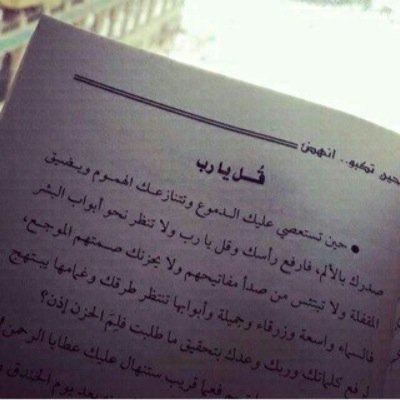 حين تكبو.. انهض
قُل يا رب
• حين تستعصي عليك الدموع وتتنازعك الهموم ويضيق
صدرك بالألم، فارفع رأسك وقل يا رب ولا تنظر نحو أبواب البشر
المقفلة ولا تبتئس من صدأ مفاتيحهم ولا يحزنك صمتهم الموجع،
فالسماء واسعة وزرقاء وجميلة وأبوابها تنتظر طرقك وغمامها يبتهج
لرفع كلماتك وربك وعدك بتحقيق ما طلبت فلِمَ الحزن إذن؟
فعما قريب ستنهال عليك عطايا الرحمن
بعد يوم الخندق